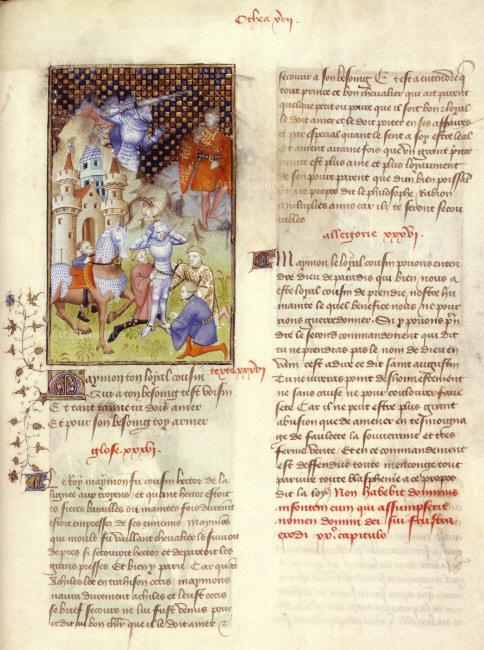 Othea xvii.
texte xxxvi
Maymon ton loyal cousin
Qui a ton besoing test voisin
Et tant tanne tu dois amer
Et pour son besoing toy armer
glose. xxxvi.
Le Roy maymon fu cousin hector de la
ligne aux troyens et quant hector estoit
es fieres batailles ou maintes fois divient
estoit empresse de ses ennemis Maymon
qui moult fu vaillant chevalier le suivoit
de pres si secouroit hector et departoit les
grans presses Et bien y paru Car quant
Achilles lot en traison occis maymon
navra durement achiles et leust occis
se brief secours ne lui fust venus pour
ce dit au bon chlr que il le doit amer et
secourir a son besoing Et est a entendre q
tout prince et bon chevalier qui ait parent
quelque petit ou povre que il soit bon et loyal
le doit amer et le doit porter en ses affaires
et par especial quant le sent a soy estre leal
Et avient aucune fois que un grant prince
est plus ame et plus loyaument
de son povre parent que dun bien puissant
Et a ce propos dit le philosophe Rabion
multiplies amis car ilz te seront secou
rables
allegorie xxxvi.
Maymon le loyal cousin pouons enten
dre dieu de paradis qui bien nous a
este loyal cousin de prendre nostre hu
manite le quel benefice nous ne pour
rions guerredonner Si pouons pren
dre le second commandement qui dit
tu ne prendras pas le nom de dieu en
vain cest adire ce dit saint augustin
Tu ne iureras point deshonnestement
ne sans cause ne pour coulourer faul
sete Car il ne peut estre plus grant
abusion que de amener en tesmoigna
ge de faulcete la souveraine et tres
ferme verite Et en ce commandement
est deffendue toute menconge tout
pariure toute blaspheme a ce propos
dit la loy Non habebit dominus
insontem eum qui assumpserit
nomen domini dei sui frustra
exodi xx. capitulo